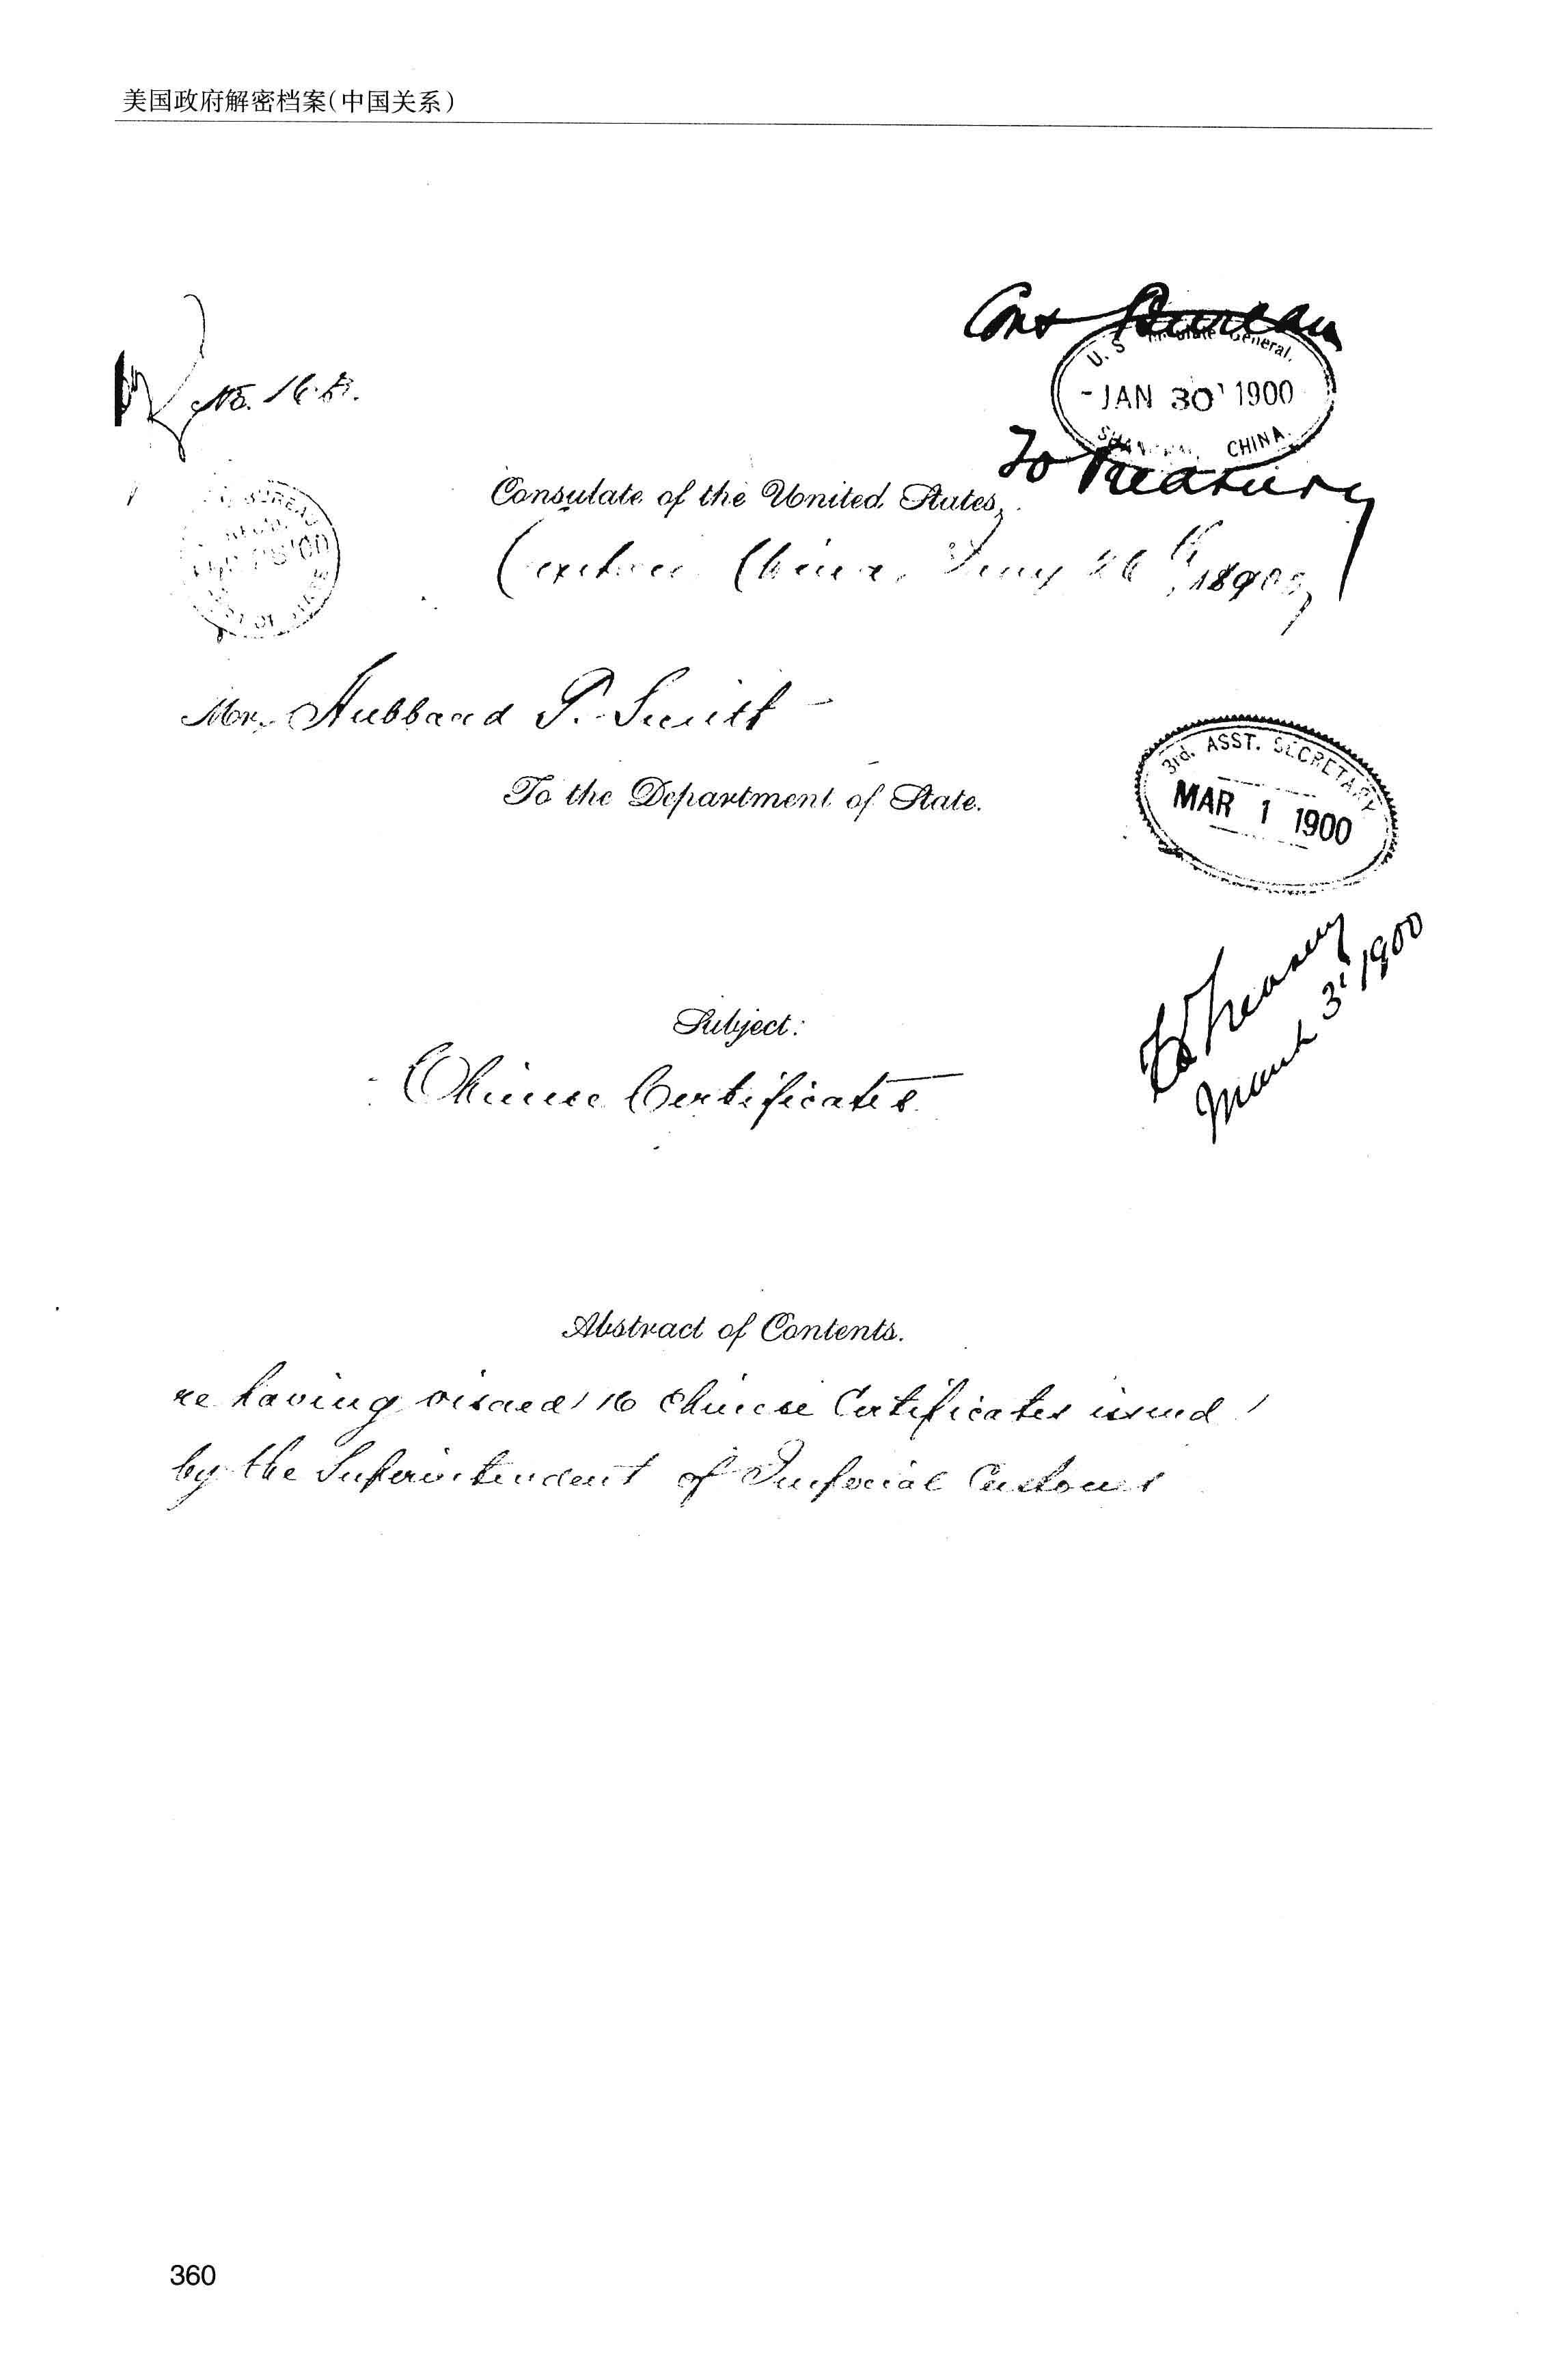 美国政府解密档案(中国关系)
Cons Bureau
U.S. Consulate General.
JAN 30 1900
SHANGHAI, CHINA.
To Treasury
No. 16.B.
BUREAU
Consulate of the United States,
Canton China, Jany 26th, 1900,
Mr. Hubbard T. Smith
To the Department of State.
3rd. ASST. SECRETARY
MAR 1 1900
Treasury
March 3, 1900
Subject:
Chinese Certificates
Abstract of Contents.
re having visaed 16 Chinese Certificates issued
by the Superintendent of Imperial Customs
360